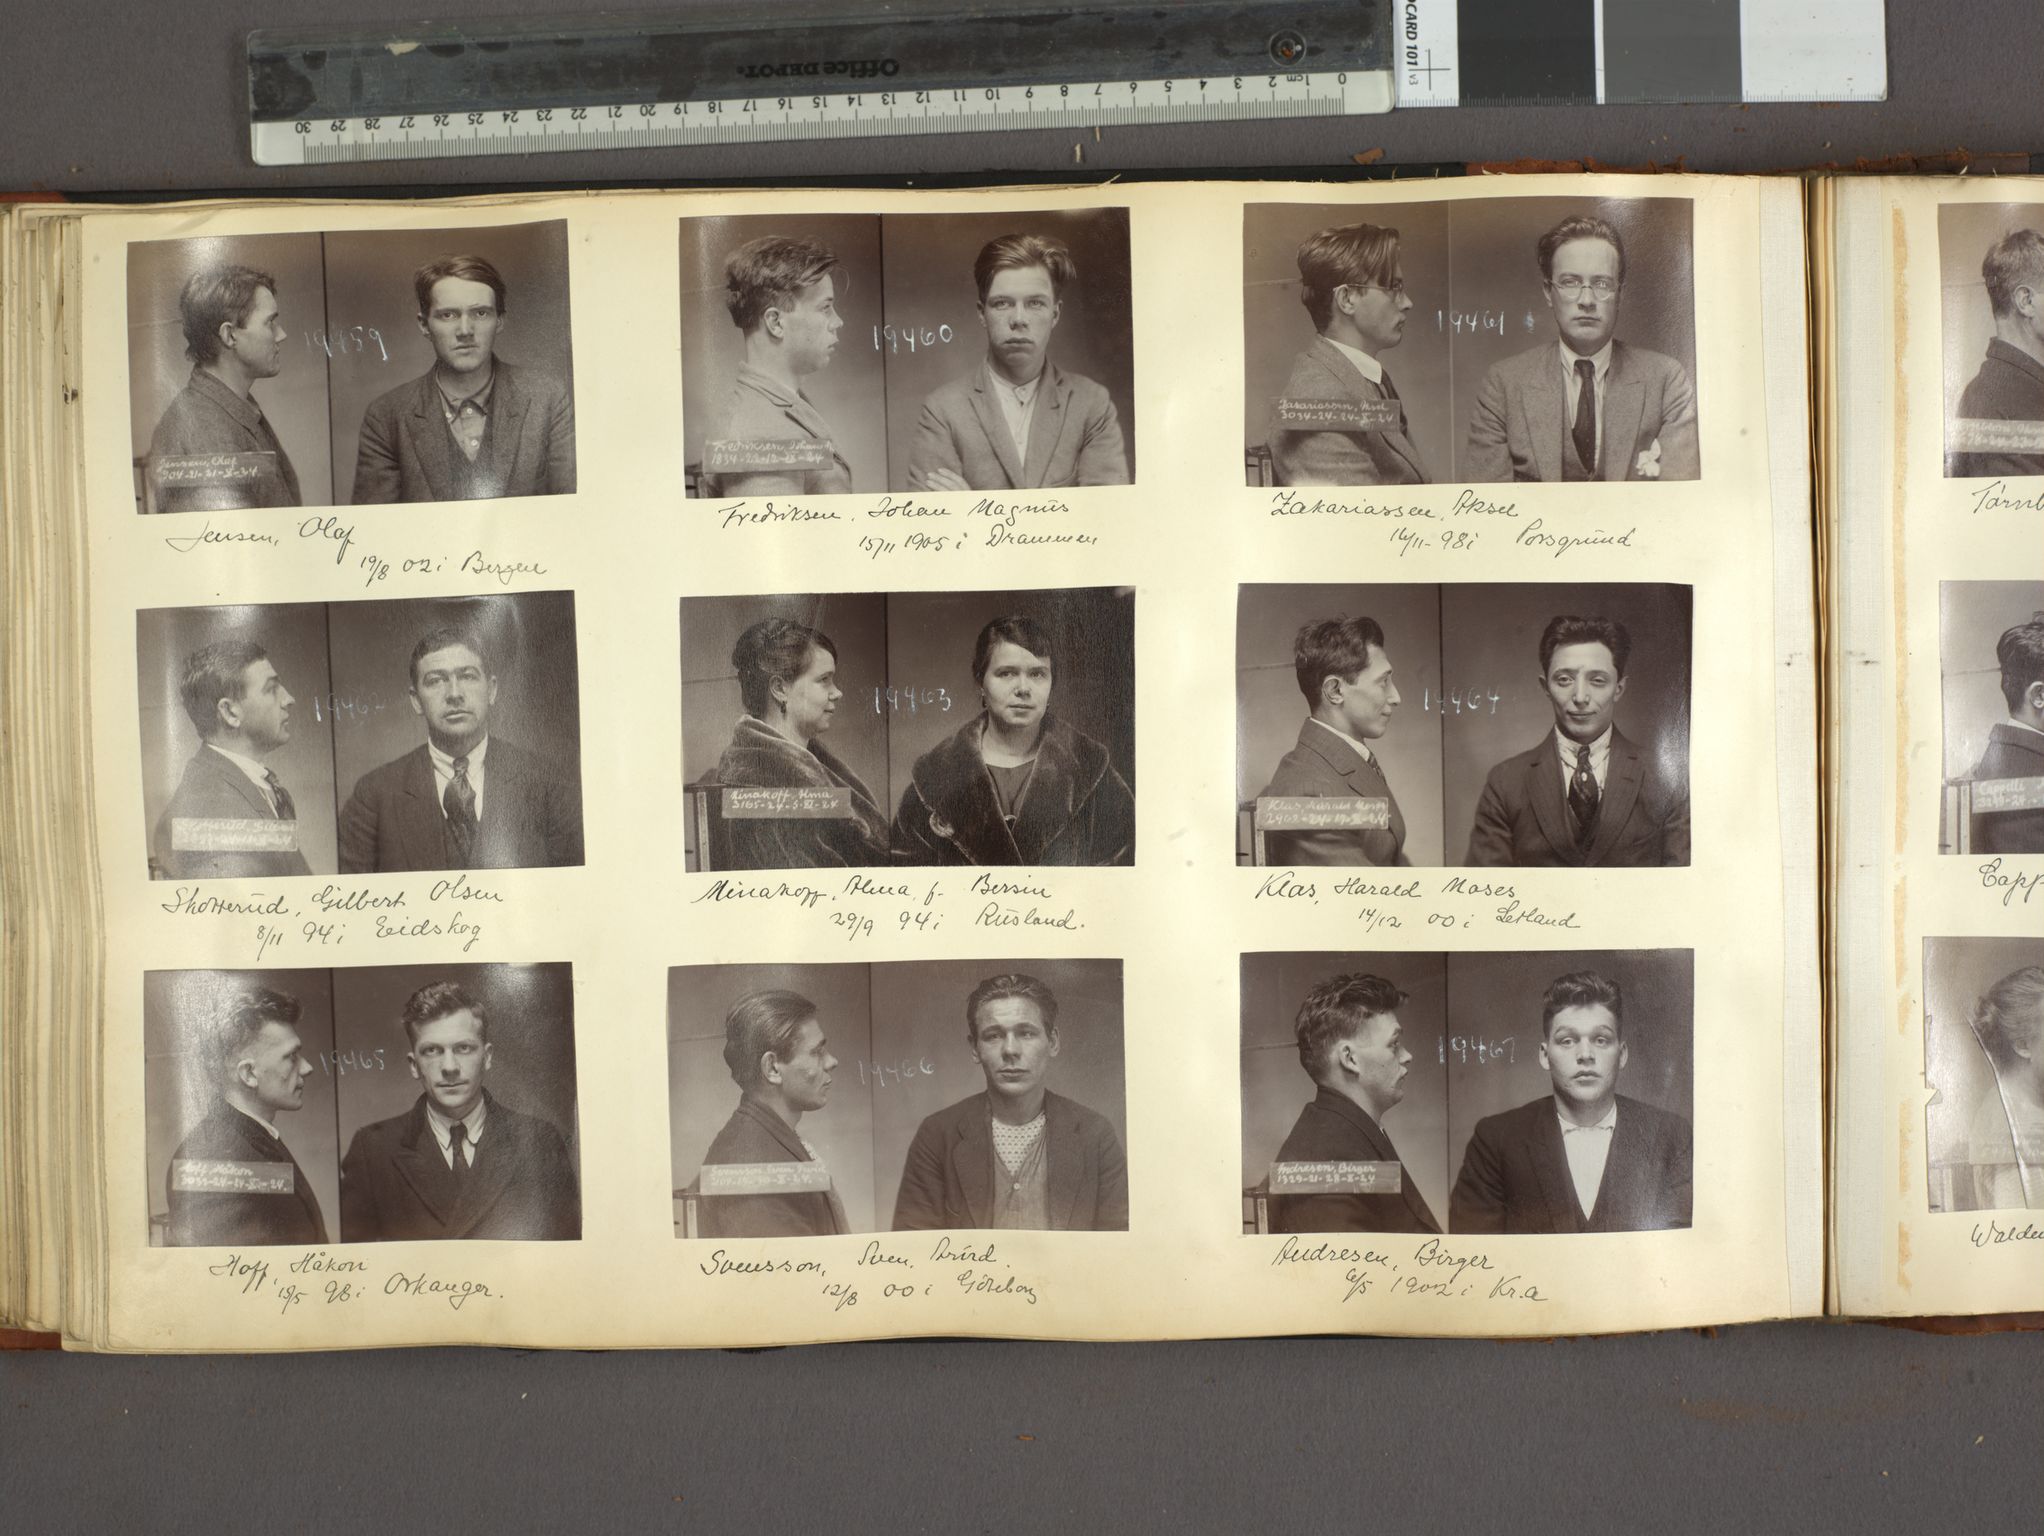 Office DEPOT.
0 1cm 2 3 4 5 6 7 8 9 10 11 12 13 14 15 16 17 18 19 20 21 22 23 24 25 26 27 28 29 30
CARD 101 v3
19459
Jensen, Olaf
Jensen, Olaf
19/8 02 i Bergen
19460
Fredriksen, Johan M
1834-22-12-IX-24
Fredriksen, Johan Magnus
15/11 1905 i Drammen
19461
Zakariassen, Aksel
3034-24-24-X-24
Zakariassen, Aksel
16/11-98 i Porsgrund
19462
Skotterud, Gilbert
Skotterud, Gilbert Olsen
8/11 94 i Eidskog
19463
Minakoff, Alma
3165-24-5-XI-24
Minakoff, Alma, f. Bersin
29/9 94 i Rusland.
19464
Klas, Harald Moses
Klas, Harald Moses
14/12 00 i Letland
19465
Hoff, Håkon
Hoff, Håkon
15/5 98 i Orkanger.
19466
Svensson, Sven
Svensson, Sven,
12/8 00 i Göteborg
19467
Andresen, Birger
1329-21-28-X-24
Andresen, Birger
6/5 1902 i Kr.a
Törnb
Cappelli
Capp
Walde